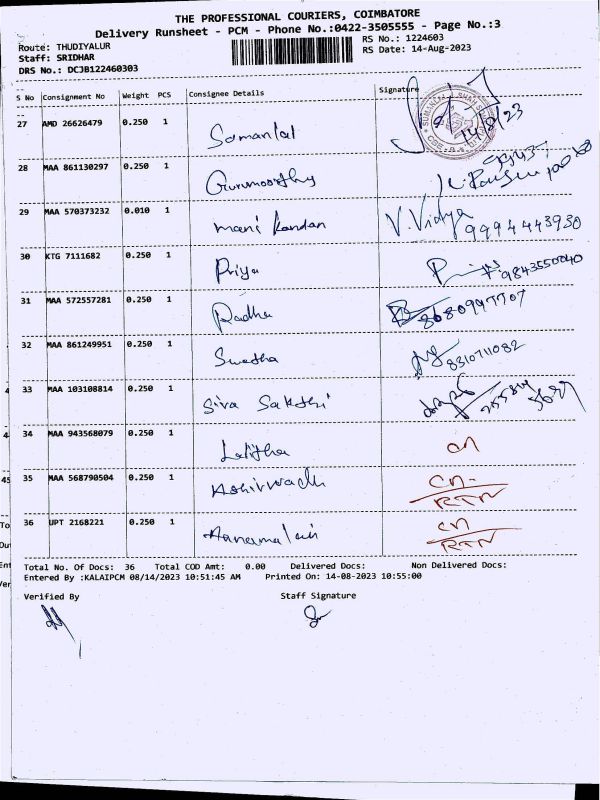 THE PROFESSIONAL COURIERS, COIMBATORE
Delivery Runsheet - PCM - Phone No.:0422-3505555 - Page No.:3
Route: THUDIYALUR
RS No.: 1224603
Staff: SRIDHAR
RS Date: 14-Aug-2023
DRS No.: DCJB122460303
S No Consignment No Weight PCS Consignee Details Signature
27 AMD 26626479 0.250 1 Samanlal 14/8/23
28 MAA 861130297 0.250 1 Gurumoorthy
29 MAA 570373232 0.010 1 mani kandan V. Vidya 9994443930
30 KTG 7111682 0.250 1 Priya 9843550040
31 MAA 572557281 0.250 1 Radha 8680997707
32 MAA 861249951 0.250 1 Swetha 8310711082
33 MAA 103108814 0.250 1 Siva Sakthi
34 MAA 943568079 0.250 1 Lalitha CN
35 MAA 568790504 0.250 1 CN-
RTN
36 UPT 2168221 0.250 1 CN
RTN
Total No. Of Docs: 36 Total COD Amt: 0.00 Delivered Docs: Non Delivered Docs:
Entered By :KALAIPCM 08/14/2023 10:51:45 AM Printed On: 14-08-2023 10:55:00
Verified By Staff Signature